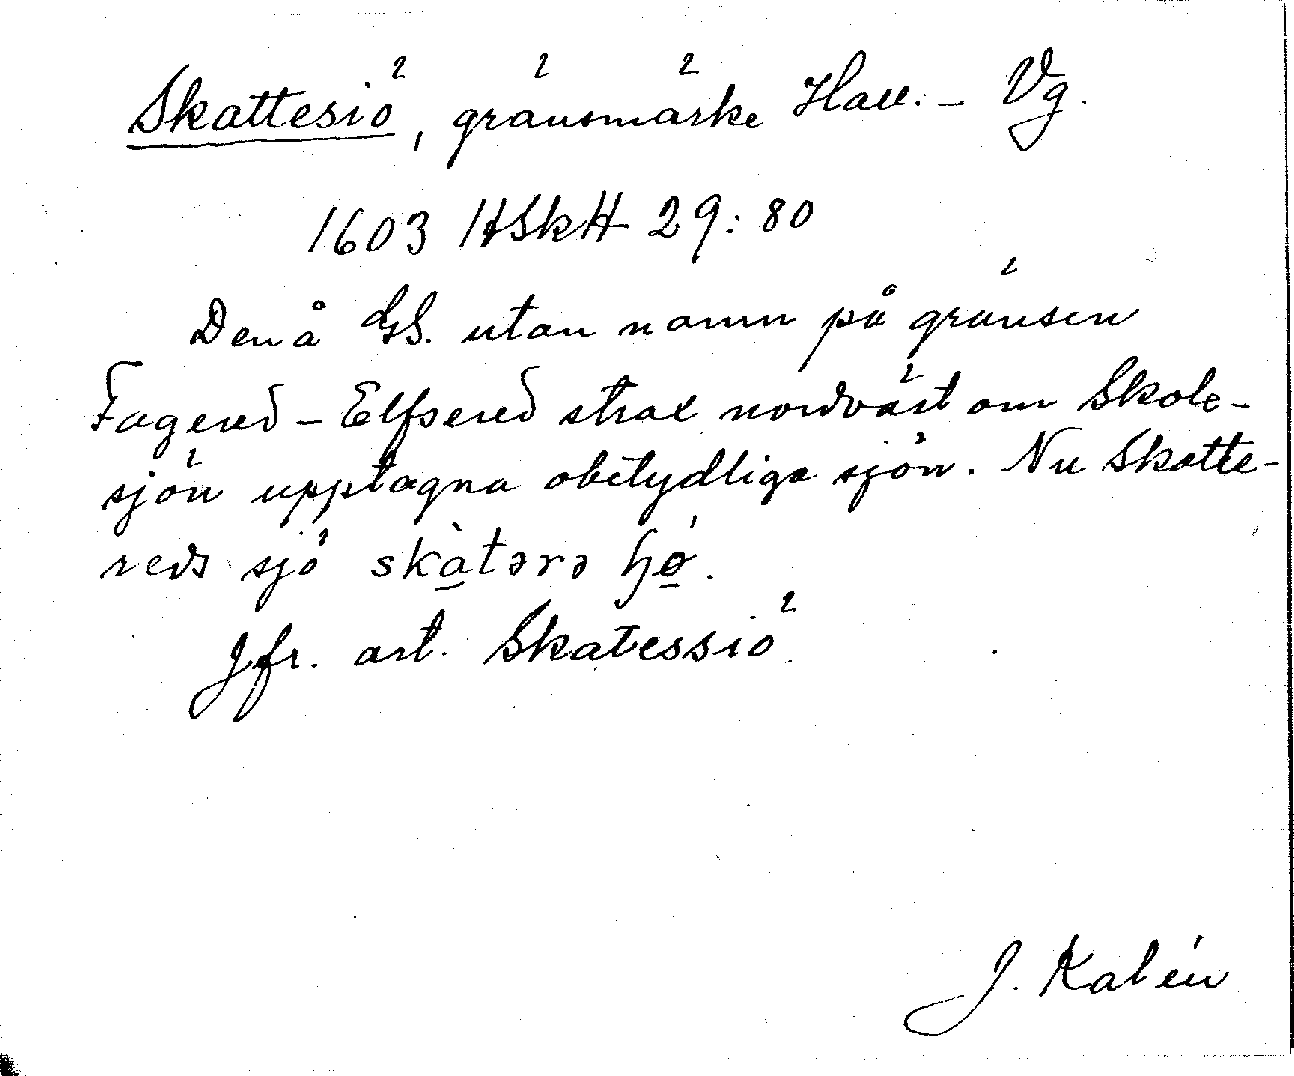 Skattesiö, gränsmärke Hall. – Vg.
1603 HSkH 29:80
Den å GS. utan namn på gränsen
Fagered – Elfsered strax nordväst om Skole-
sjön upptagna obetydliga sjön. Nu Skatte-
reds sjö skàtərə ɧǿ.
Jfr. art. Skatessiö
J. Kalén